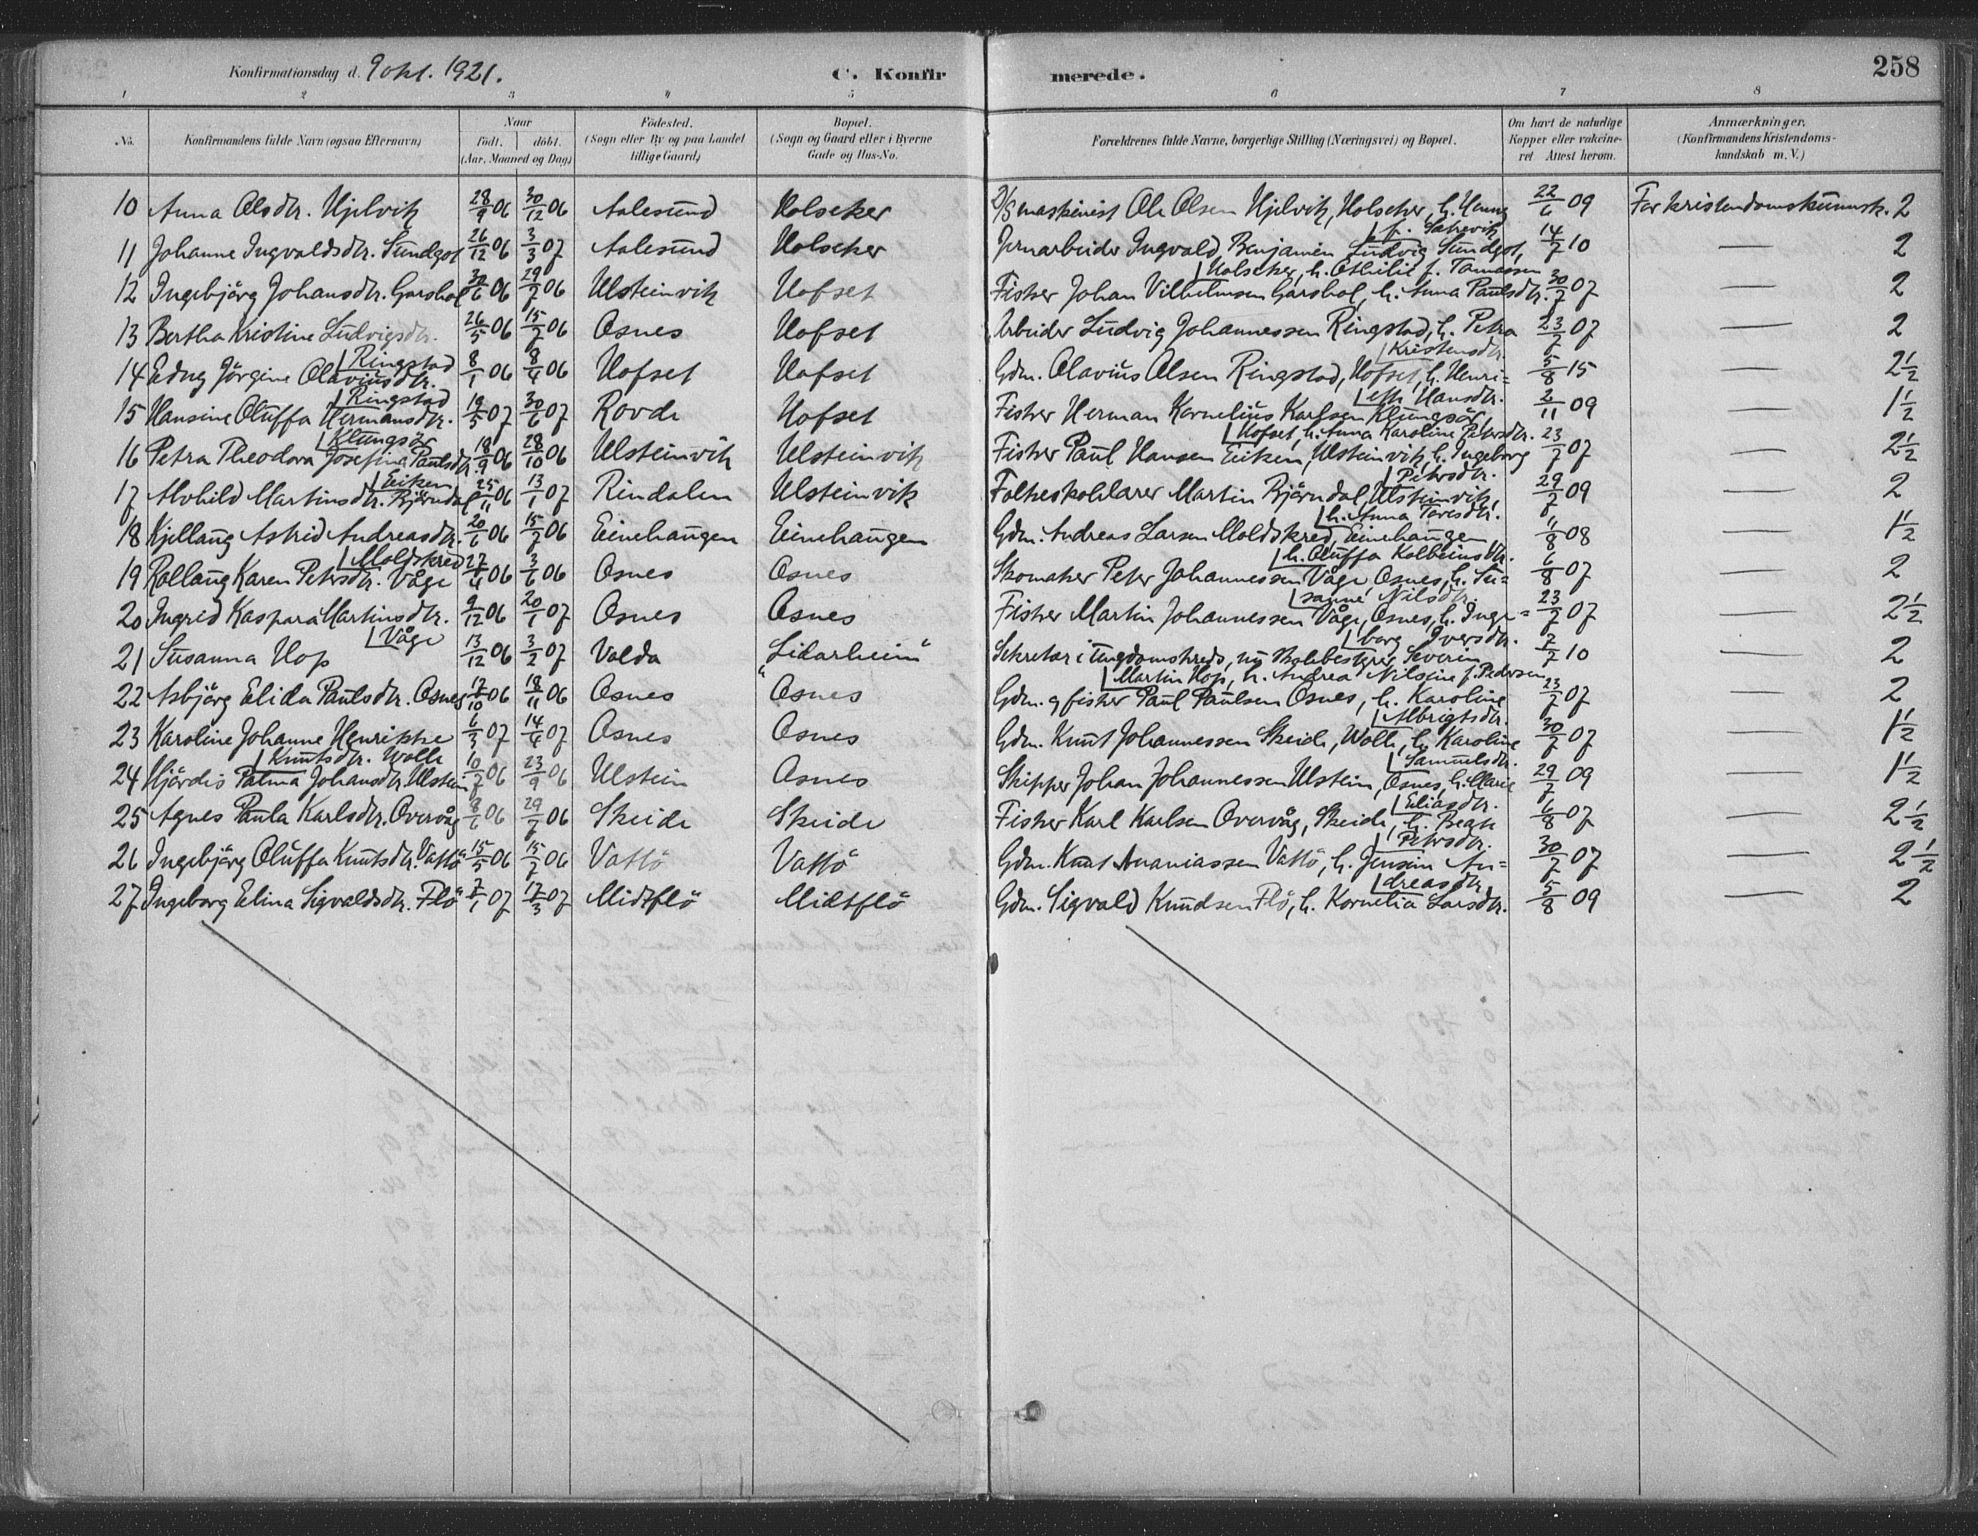 Konfirmationsdag d. 9 okt. 1921. C. Konfirmerede. 258
1 2 3 4 5 6 7 8
No. Konfirmandens fulde Navn (ogsaa Efternavn) Naar födt. döbt. (Aar, Maaned og Dag) Födested. (Sogn eller By og paa Landet tillige Gaard) Bopæl. (Sogn og Gaard eller i Byerne Gade og Hus-No. Forældrenes fulde Navne, borgerlige Stilling (Næringsvei) og Bopæl. Om havt de naturlige Kopper eller vakcineret Attest herom. Anmærkninger. (Konfirmandens Kristendomskundskab m. V.)
10 Anna Olsdtr. Hjelvik 28/9 06 30/12 06 Aalesund Holseker D/S maskinist Ole Olsen Hjelvik, Holseker, h. Henny f. Sætrevik 22/6 09 For kristendomskunnsk. 2
11 Johanne Ingvaldsdtr. Sundgot 26/12 06 3/3 07 Aalesund Holseker Jernarbeider Ingvald Benjamin Ludvig Sundgot, Holseker, h. Othilie f. Tomassen 14/7 10 — 2
12 Ingebjörg Johansdtr. Garshol 30/6 06 29/7 06 Ulsteinvik Hofset Fisker Johan Vilhelmsen Garshol, h. Anna Paulsdtr. 30/7 07 — 2
13 Bertha Kristine Ludvigsdtr. Ringstad 26/5 06 15/7 06 Osnes Hofset Arbeider Ludvig Johannessen Ringstad, h. Petra Kristensdtr. 23/7 07 — 2
14 Edny Jörgine Olaviusdtr. Ringstad 8/1 06 8/4 06 Hofset Hofset Gdm. Olavius Olsen Ringstad, Hofset, h. Henriette Hansdtr. 5/8 15 — 2 1/2
15 Hansine Oluffa Hermansdtr. Klungsör 19/5 07 30/6 07 Rovde Hofset Fisker Herman Kornelius Karlsen Klungsör, Hofset, h. Anna Karoline Petersdtr. 2/11 09 — 1 1/2
16 Petra Theodora Josefina Paulsdtr. Eiken 18/9 06 28/10 06 Ulsteinvik Ulsteinvik Fisker Paul Hansen Eiken, Ulsteinvik, h. Ingeborg Petersdtr. 23/7 07 — 2 1/2
17 Alvhild Martinsdtr. Bjørndal 25/11 06 13/1 07 Rindalen Ulsteinvik Folkeskolelærer Martin Bjørndal, Ulsteinvik, h. Anna Toresdtr. 29/7 09 — 2
18 Kjellaug Astrid Andreasdtr. Moldskred 20/6 06 15/7 06 Einehaugen Einehaugen Gdm. Andreas Larsen Moldskred, Einehaugen h. Oluffa Kolbeinsdtr. 1/8 08 — 1 1/2
19 Rollaug Karen Petersdtr. Våge 27/4 06 3/6 06 Osnes Osnes Skomaker Peter Johannessen Våge, Osnes, h. Susanne Nilsdtr. 6/8 07 — 2
20 Ingrid Kaspara Martinsdtr. Våge 9/12 06 20/1 07 Osnes Osnes Fisker Martin Johannessen Våge, Osnes, h. Ingeborg Iversdtr. 23/7 07 — 2 1/2
21 Susanna Hop 13/12 06 3/2 07 Volda "Lidarheim" Sekretær i Ungdomskreds, nu skolebestyrer Severin Martin Hop, h. Andrea Nilsine f. Pedersen 2/7 10 — 2
22 Asbjörg Elida Paulsdtr. Osnes 12/10 06 18/11 06 Osnes Osnes Gdm. og fisker Paul Paulsen Osnes, h. Karoline Albrigtsdtr. 23/7 07 — 2
23 Karoline Johanne Henrikke Knutsdtr. Wolle 6/3 07 14/4 07 Osnes Osnes Gdm. Knut Johannessen Skeide, Wolle, h. Karoline Samuelsdtr. 30/7 07 — 1 1/2
24 Hjördis Palma Johansdtr. Ulstein 10/7 06 23/9 06 Ulstein Osnes Skipper Johan Johannessen Ulstein, Osnes, h. Marie Eliasdtr. 29/7 09 — 1 1/2
25 Agnes Paula Karlsdtr. Overvåg 8/6 06 29/7 06 Skeide Skeide Fisker Karl Karlsen Overvåg, Skeide, h. Beate Petersdtr. 6/8 07 — 2 1/2
26 Ingebjörg Oluffa Knutsdtr. Vattö 15/5 06 15/7 06 Vattö Vattö Gdm. Knut Ananiassen Vattö, h. Jensine Andreasdtr. 30/7 07 — 2 1/2
27 Ingeborg Elina Sigvaldsdtr. Flö 7/1 07 17/3 07 Midtflö Midtflö Gdm. Sigvald Knudsen Flö, h. Kornelia Larsdtr. 5/8 09 — 2